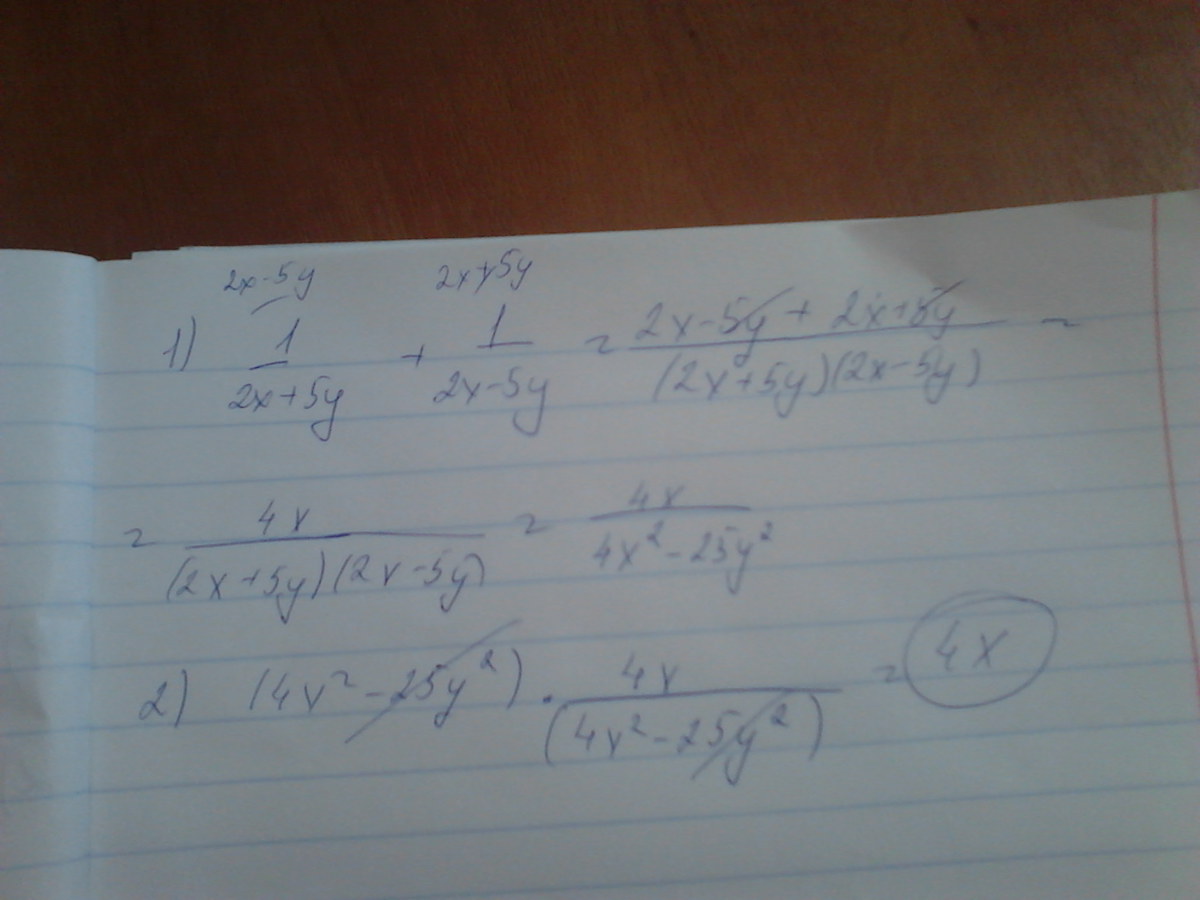 2x-5y 2x+5y
1) 1/(2x+5y) + 1/(2x-5y) = (2x-5y + 2x+5y)/((2x+5y)(2x-5y)) =
= 4x/((2x+5y)(2x-5y)) = 4x/(4x²-25y²)
2) (4x²-25y²) · 4x/(4x²-25y²) = 4x